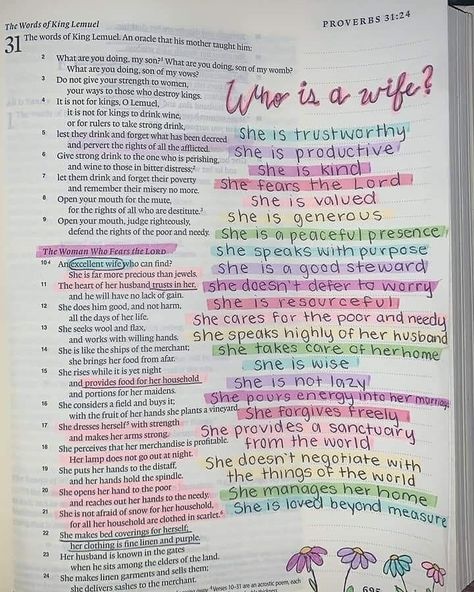 The Words of King Lemuel
PROVERBS 31:24
31 The words of King Lemuel. An oracle that his mother taught him:
2 What are you doing, my son? What are you doing, son of my womb?
What are you doing, son of my vows?
3 Do not give your strength to women,
your ways to those who destroy kings.
4 It is not for kings, O Lemuel,
it is not for kings to drink wine,
or for rulers to take strong drink,
5 lest they drink and forget what has been decreed
and pervert the rights of all the afflicted.
6 Give strong drink to the one who is perishing,
and wine to those in bitter distress;
7 let them drink and forget their poverty
and remember their misery no more.
8 Open your mouth for the mute,
for the rights of all who are destitute.
9 Open your mouth, judge righteously,
defend the rights of the poor and needy.
The Woman Who Fears the LORD
10 An excellent wife who can find?
She is far more precious than jewels.
11 The heart of her husband trusts in her,
and he will have no lack of gain.
12 She does him good, and not harm,
all the days of her life.
13 She seeks wool and flax,
and works with willing hands.
14 She is like the ships of the merchant;
she brings her food from afar.
15 She rises while it is yet night
and provides food for her household
and portions for her maidens.
16 She considers a field and buys it;
with the fruit of her hands she plants a vineyard.
17 She dresses herself with strength
and makes her arms strong.
18 She perceives that her merchandise is profitable.
Her lamp does not go out at night.
19 She puts her hands to the distaff,
and her hands hold the spindle.
20 She opens her hand to the poor
and reaches out her hands to the needy.
21 She is not afraid of snow for her household,
for all her household are clothed in scarlet.
22 She makes bed coverings for herself;
her clothing is fine linen and purple.
23 Her husband is known in the gates
when he sits among the elders of the land.
24 She makes linen garments and sells them;
she delivers sashes to the merchant.
Verses 10–31 are an acrostic poem, each
695
Who is a wife?
She is trustworthy
She is productive
She is kind
She fears the Lord
She is valued
She is generous
She is a peaceful presence
She speaks with purpose
She is a good steward
She doesn't defer to worry
She is resourceful
She cares for the poor and needy
She speaks highly of her husband
She takes care of her home
She is wise
She is not lazy
She pours energy into her marriage
She forgives freely
She provides a sanctuary
from the world
She doesn't negotiate with
the things of the world
She manages her home
She is loved beyond measure